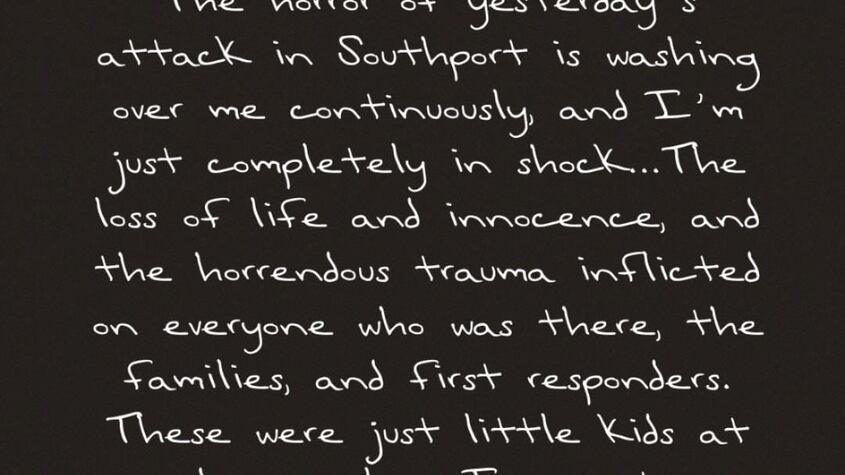 The horror of yesterday's
attack in Southport is washing
over me continuously, and I'm
just completely in shock...The
loss of life and innocence, and
the horrendous trauma inflicted
on everyone who was there, the
families, and first responders.
These were just little kids at